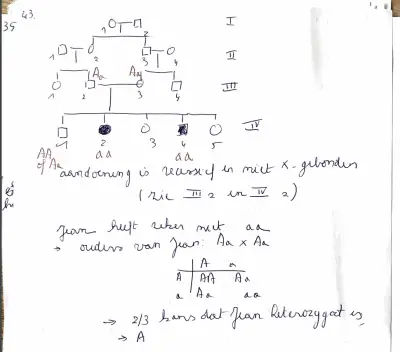 43.
35
I
1 2
II
1 2 3 4
Aa Aa
III
1 2 3 4
IV
1 2 3 4 5
AA of Aa aa aa
aandoening is recessief en niet X-gebonden
(zie III 2 en IV 2)
Jean heeft zeker niet aa
→ ouders van Jean: Aa x Aa
A a
A AA Aa
a Aa aa
→ 2/3 kans dat Jean heterozygoot is
→ A